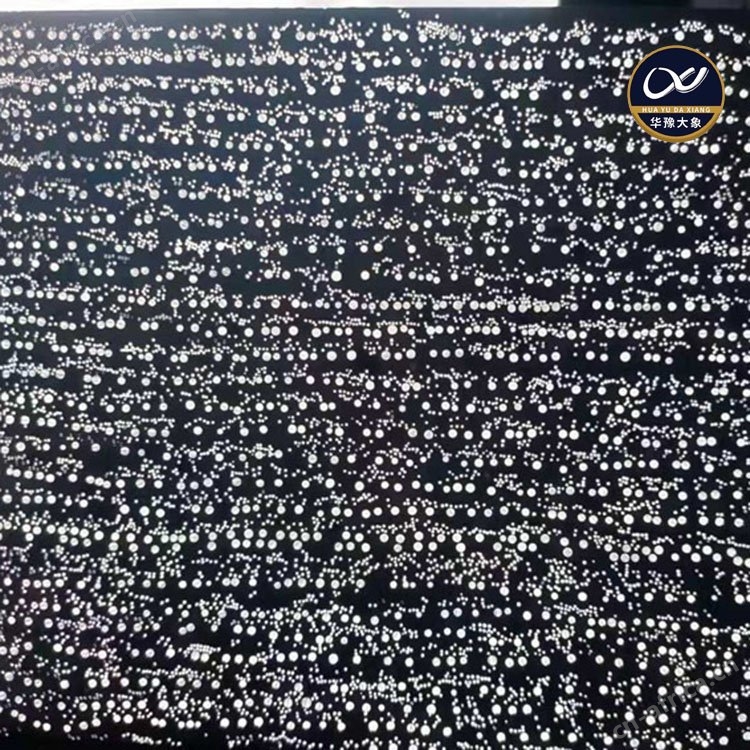 HUA YU DA XIANG
华豫大象